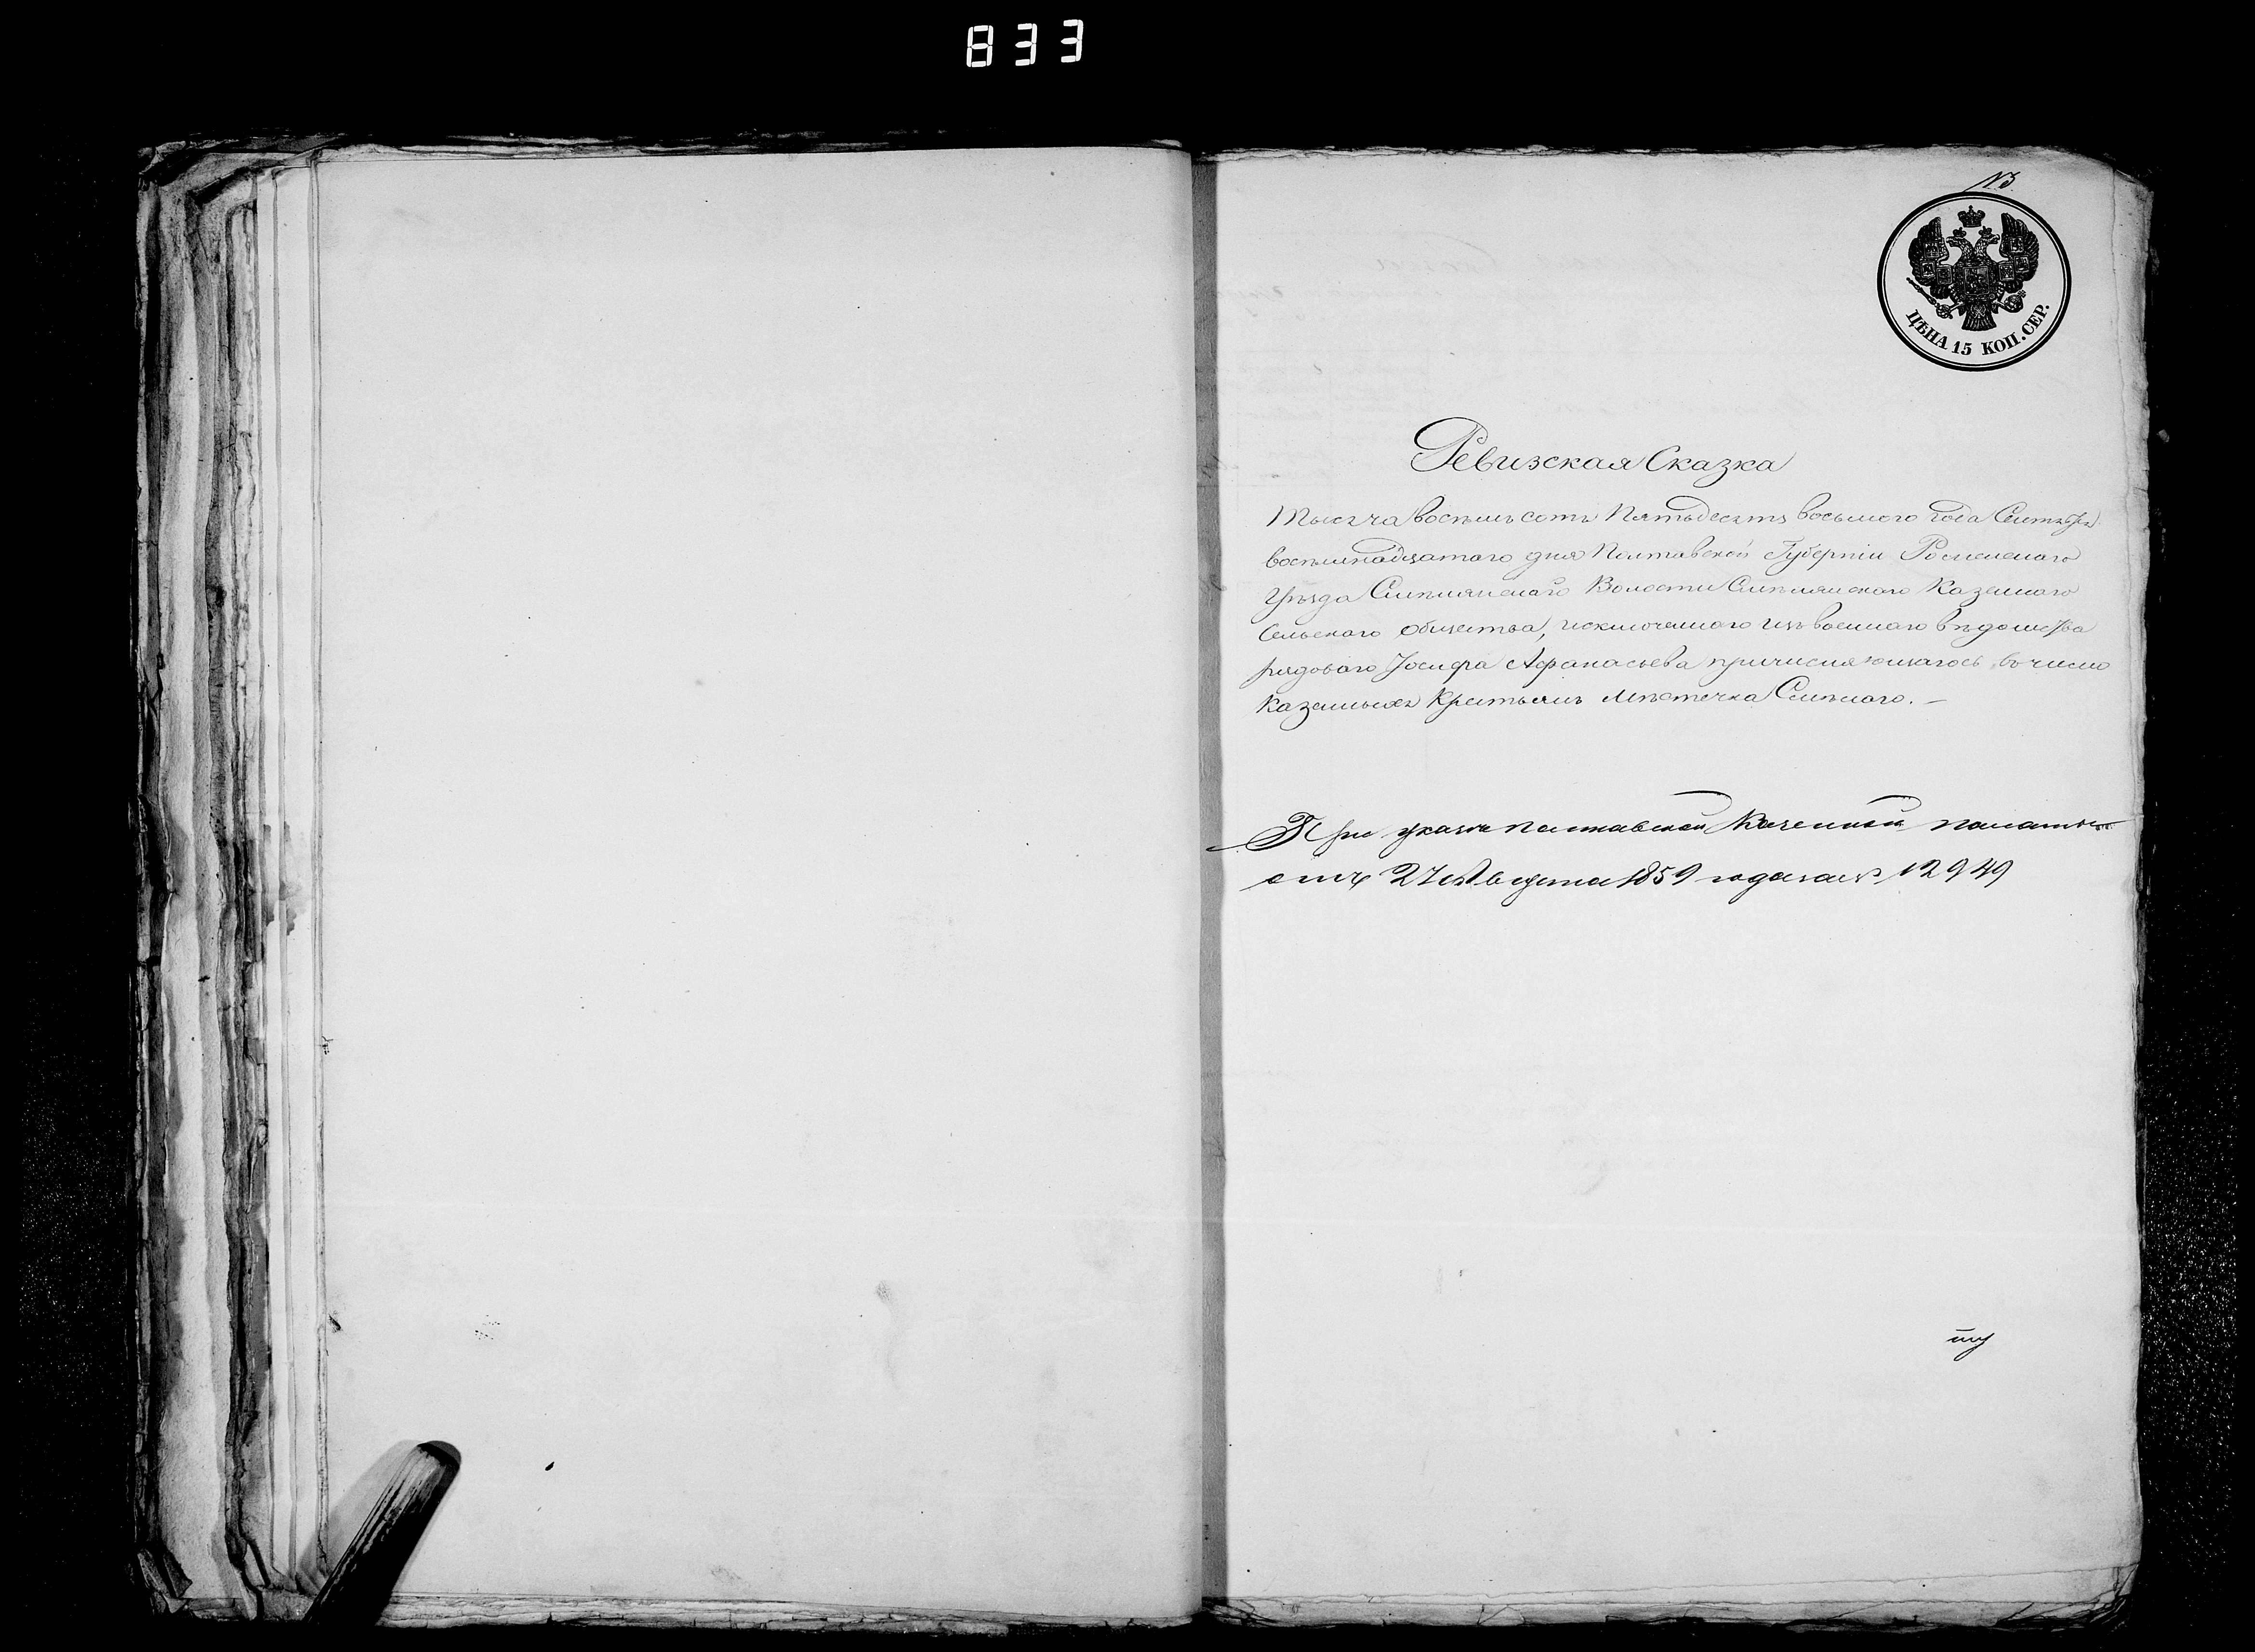 833
№3
ЦѢНА 15 КОП. СЕР.
Ревизская Сказка
Тысяча восемь сотъ Пятьдесятъ восьмого года Сентября
восемнадцатого дня Полтавской Губерніи Роменского
Уѣзда Смѣлянского Волости Смѣлянского Казенного
Сельского общества, исключенного изъ военного вѣдомства
рядового Іосифа Афанасьева причисляющагось въ число
Казенныхъ Крестьянъ Мѣстечка Смѣлого. —
При указѣ полтавской Казенной палаты
отъ 27 Августа 1859 года за № 12949